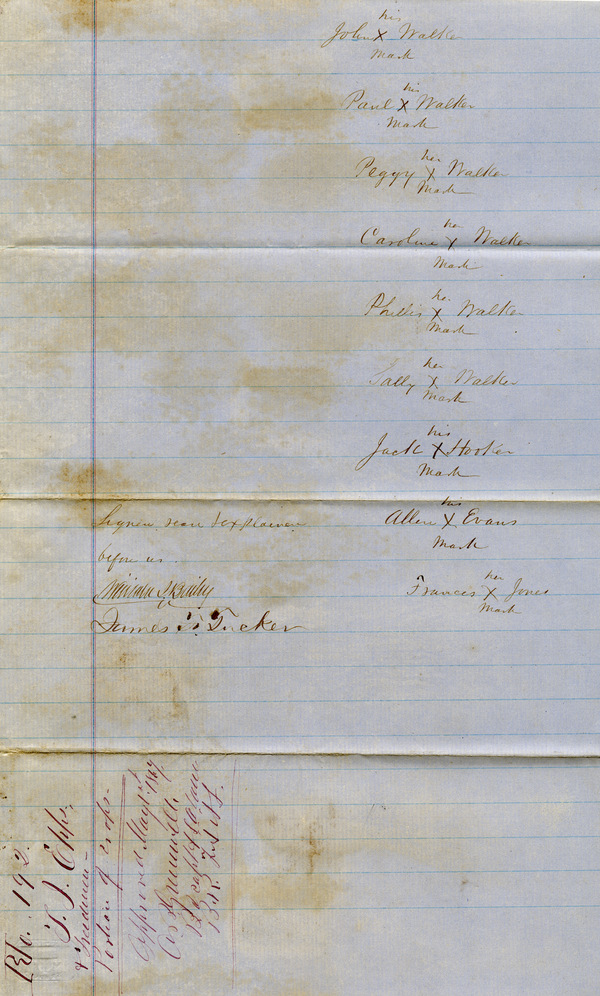 his
John X Walker
Mark
his
Paul X Walker
Mark
her
Peggy X Walker
Mark
her
Caroline X Walker
Mark
her
Phillis X Walker
Mark
her
Sally X Walker
Mark
his
Jack X Hooker
Mark
his
Allen X Evans
Mark
her
Francis X Jones
Mark
Signed, read & explained
before us.
James T. Tucker
No. 192.
T. J. Epps.
& Freedmen
Portion of crops.
Approved May 1st 1867